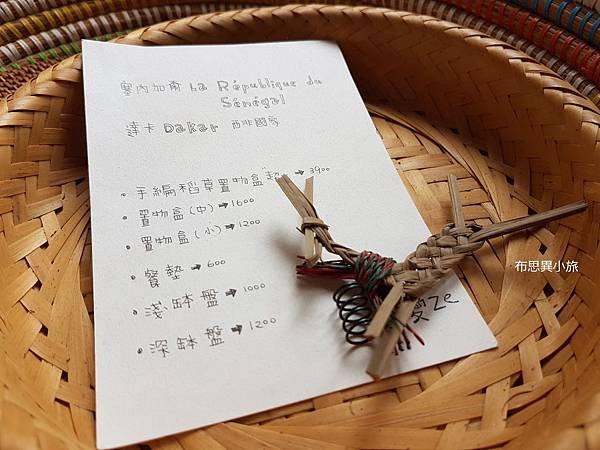 塞內加爾 La République du
Sénégal
達卡 Dakar 西非國家
• 手編稻草置物盒"超 → 3900
• 置物盒(中) → 1600
• 置物盒(小) → 1200
• 餐墊 → 600
• 淺缽盤 → 1000
• 深缽盤 → 1200
布思異小旅